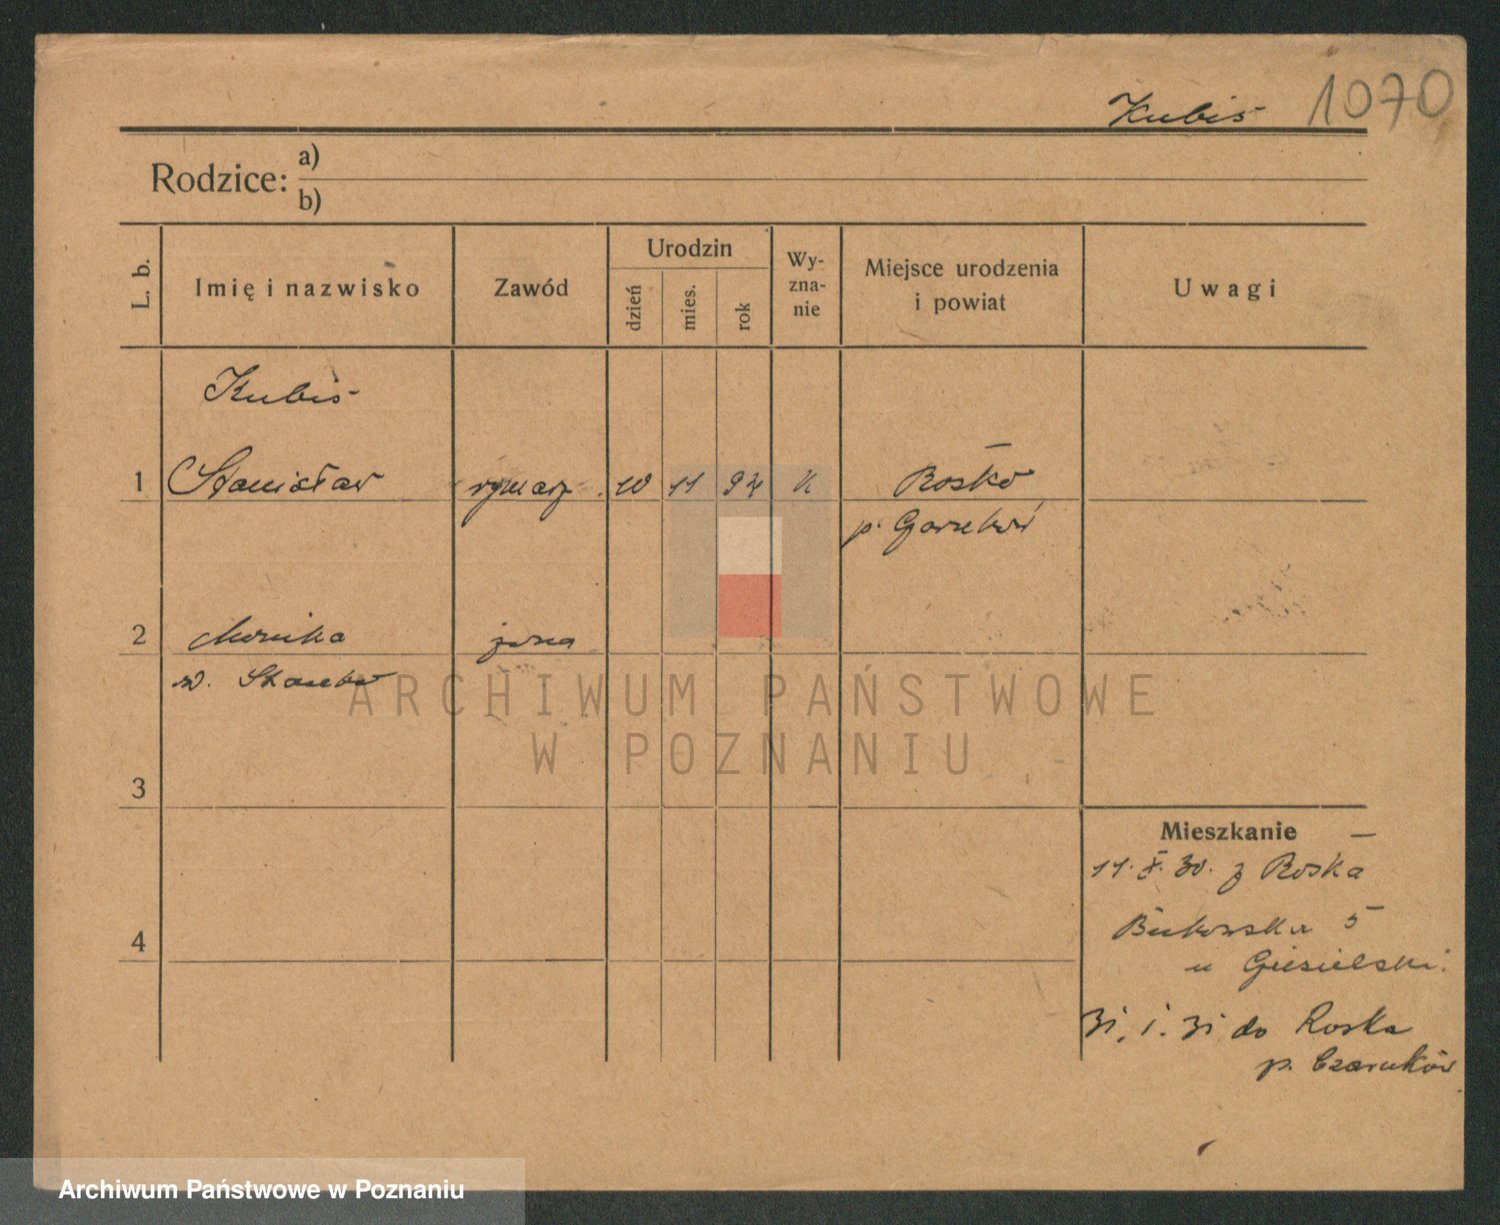 Kubiś 1070
Rodzice: a)
b)
L. b.
Imię i nazwisko
Zawód
Urodzin
dzień
mies.
rok
Wy-
zna-
nie
Miejsce urodzenia
i powiat
Uwagi
Kubiś
1 Stanisław rymarz 10 11 94 K Rosko
p.
2 Monika żona
3
4
Mieszkanie
11. X. 30. z Roska
Bukowska 5
u Ciesielski.
31. 1. 31 do Roska
p. Czarnków
ARCHIWUM PAŃSTWOWE
W POZNANIU
Archiwum Państwowe w Poznaniu